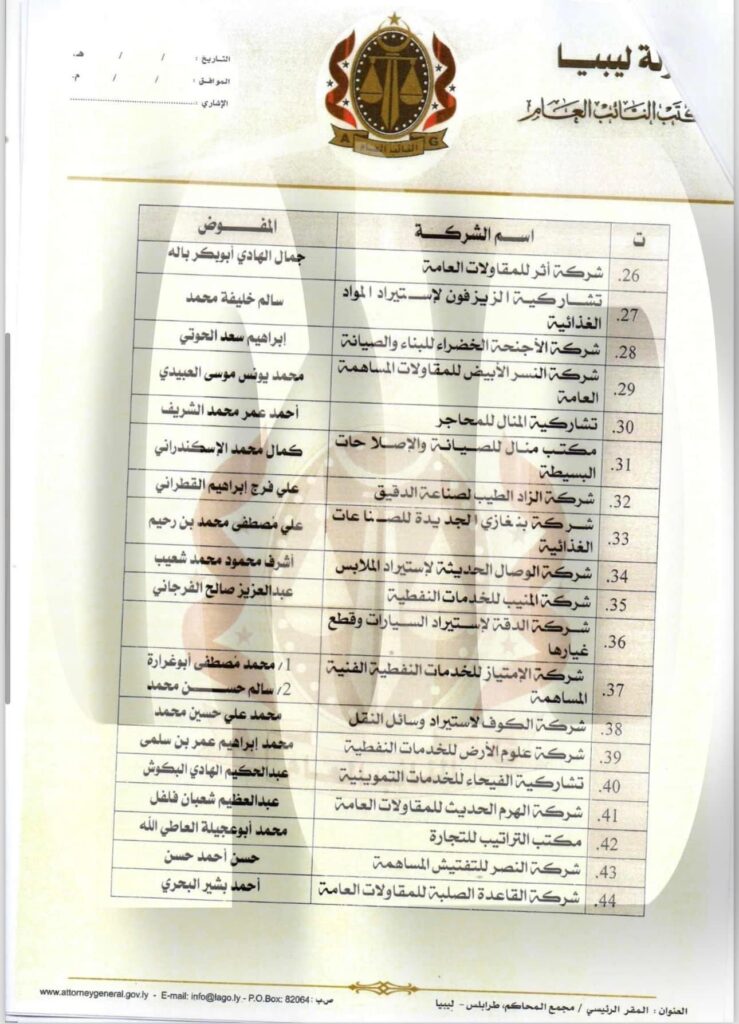 لة ليبيا
كتب النائب العام
التاريخ : / / هـ
الموافق : / / م
الإشاري :
A G
النائب العام
ت اسم الشركة المفوض
26. شركة أثر للمقاولات العامة جمال الهادي أبوبكر باله
27. تشاركية الزيزفون لإستيراد المواد الغذائية سالم خليفة محمد
28. شركة الأجنحة الخضراء للبناء والصيانة إبراهيم سعد الحوتي
29. شركة النسر الأبيض للمقاولات المساهمة العامة محمد يونس موسى العبيدي
30. تشاركية المنال للمحاجر أحمد عمر محمد الشريف
31. مكتب منال للصيانة والإصلاحات البسيطة كمال محمد الإسكندراني
32. شركة الزاد الطيب لصناعة الدقيق علي فرج إبراهيم القطراني
33. شركة بنغازي الجديدة للصناعات الغذائية علي مصطفى محمد بن رحيم
34. شركة الوصال الحديثة لإستيراد الملابس أشرف محمود محمد شعيب
35. شركة المنيب للخدمات النفطية عبدالعزيز صالح الفرجاني
36. شركة الدقة لإستيراد السيارات وقطع غيارها
37. شركة الإمتياز للخدمات النفطية الفنية المساهمة 1/ محمد مصطفى أبوغرارة
2/ سالم حسن محمد
38. شركة الكوف لاستيراد وسائل النقل محمد علي حسين محمد
39. شركة علوم الأرض للخدمات النفطية محمد إبراهيم عمر بن سلمى
40. تشاركية الفيحاء للخدمات التموينية عبدالحكيم الهادي البكوش
41. شركة الهرم الحديث للمقاولات العامة عبدالعظيم شعبان فلفل
42. مكتب التراتيب للتجارة محمد أبوعجيلة العاطي الله
43. شركة النصر للتفتيش المساهمة حسن أحمد حسن
44. شركة القاعدة الصلبة للمقاولات العامة أحمد بشير البحري
العنوان : المقر الرئيسي / مجمع المحاكم، طرابلس - ليبيا
www.attorneygeneral.gov.ly - E-mail: info@lago.ly - P.O.Box: 82064 : ص.ب